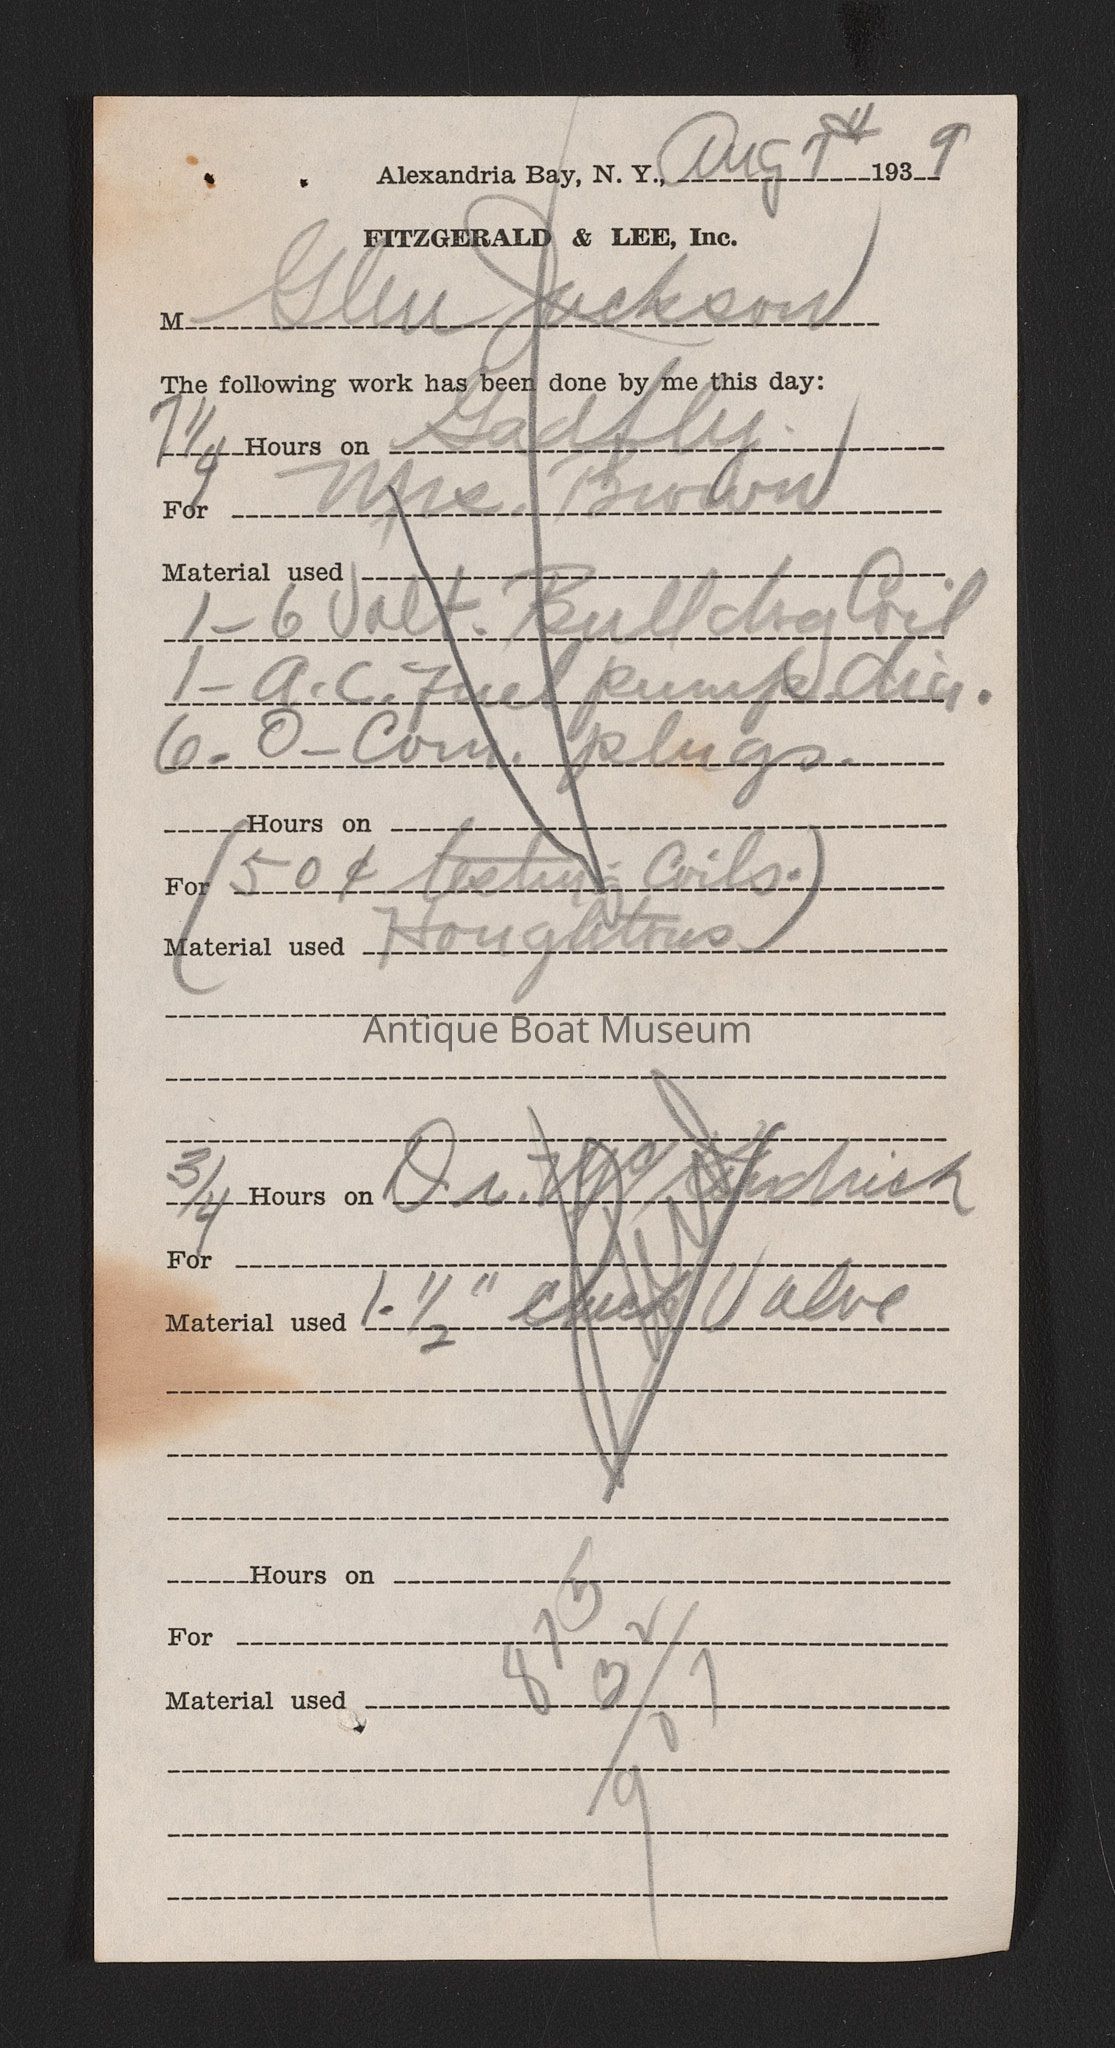 Alexandria Bay, N. Y., Aug 7th 1939
FITZGERALD & LEE, Inc.
M Glen Jackson
The following work has been done by me this day:
7 1/4 Hours on Gadfly.
For Mrs. Brown
Material used
1-6 Volt. Bulldog Coil
1- A.C. Fuel pump. dia.
6. 0- Com. plugs.
Hours on
For (50¢ testing Coils.)
Material used Houghtons
Antique Boat Museum
3/4 Hours on Dr.
For
Material used 1- 1/2" check Valve
Hours on
For
Material used